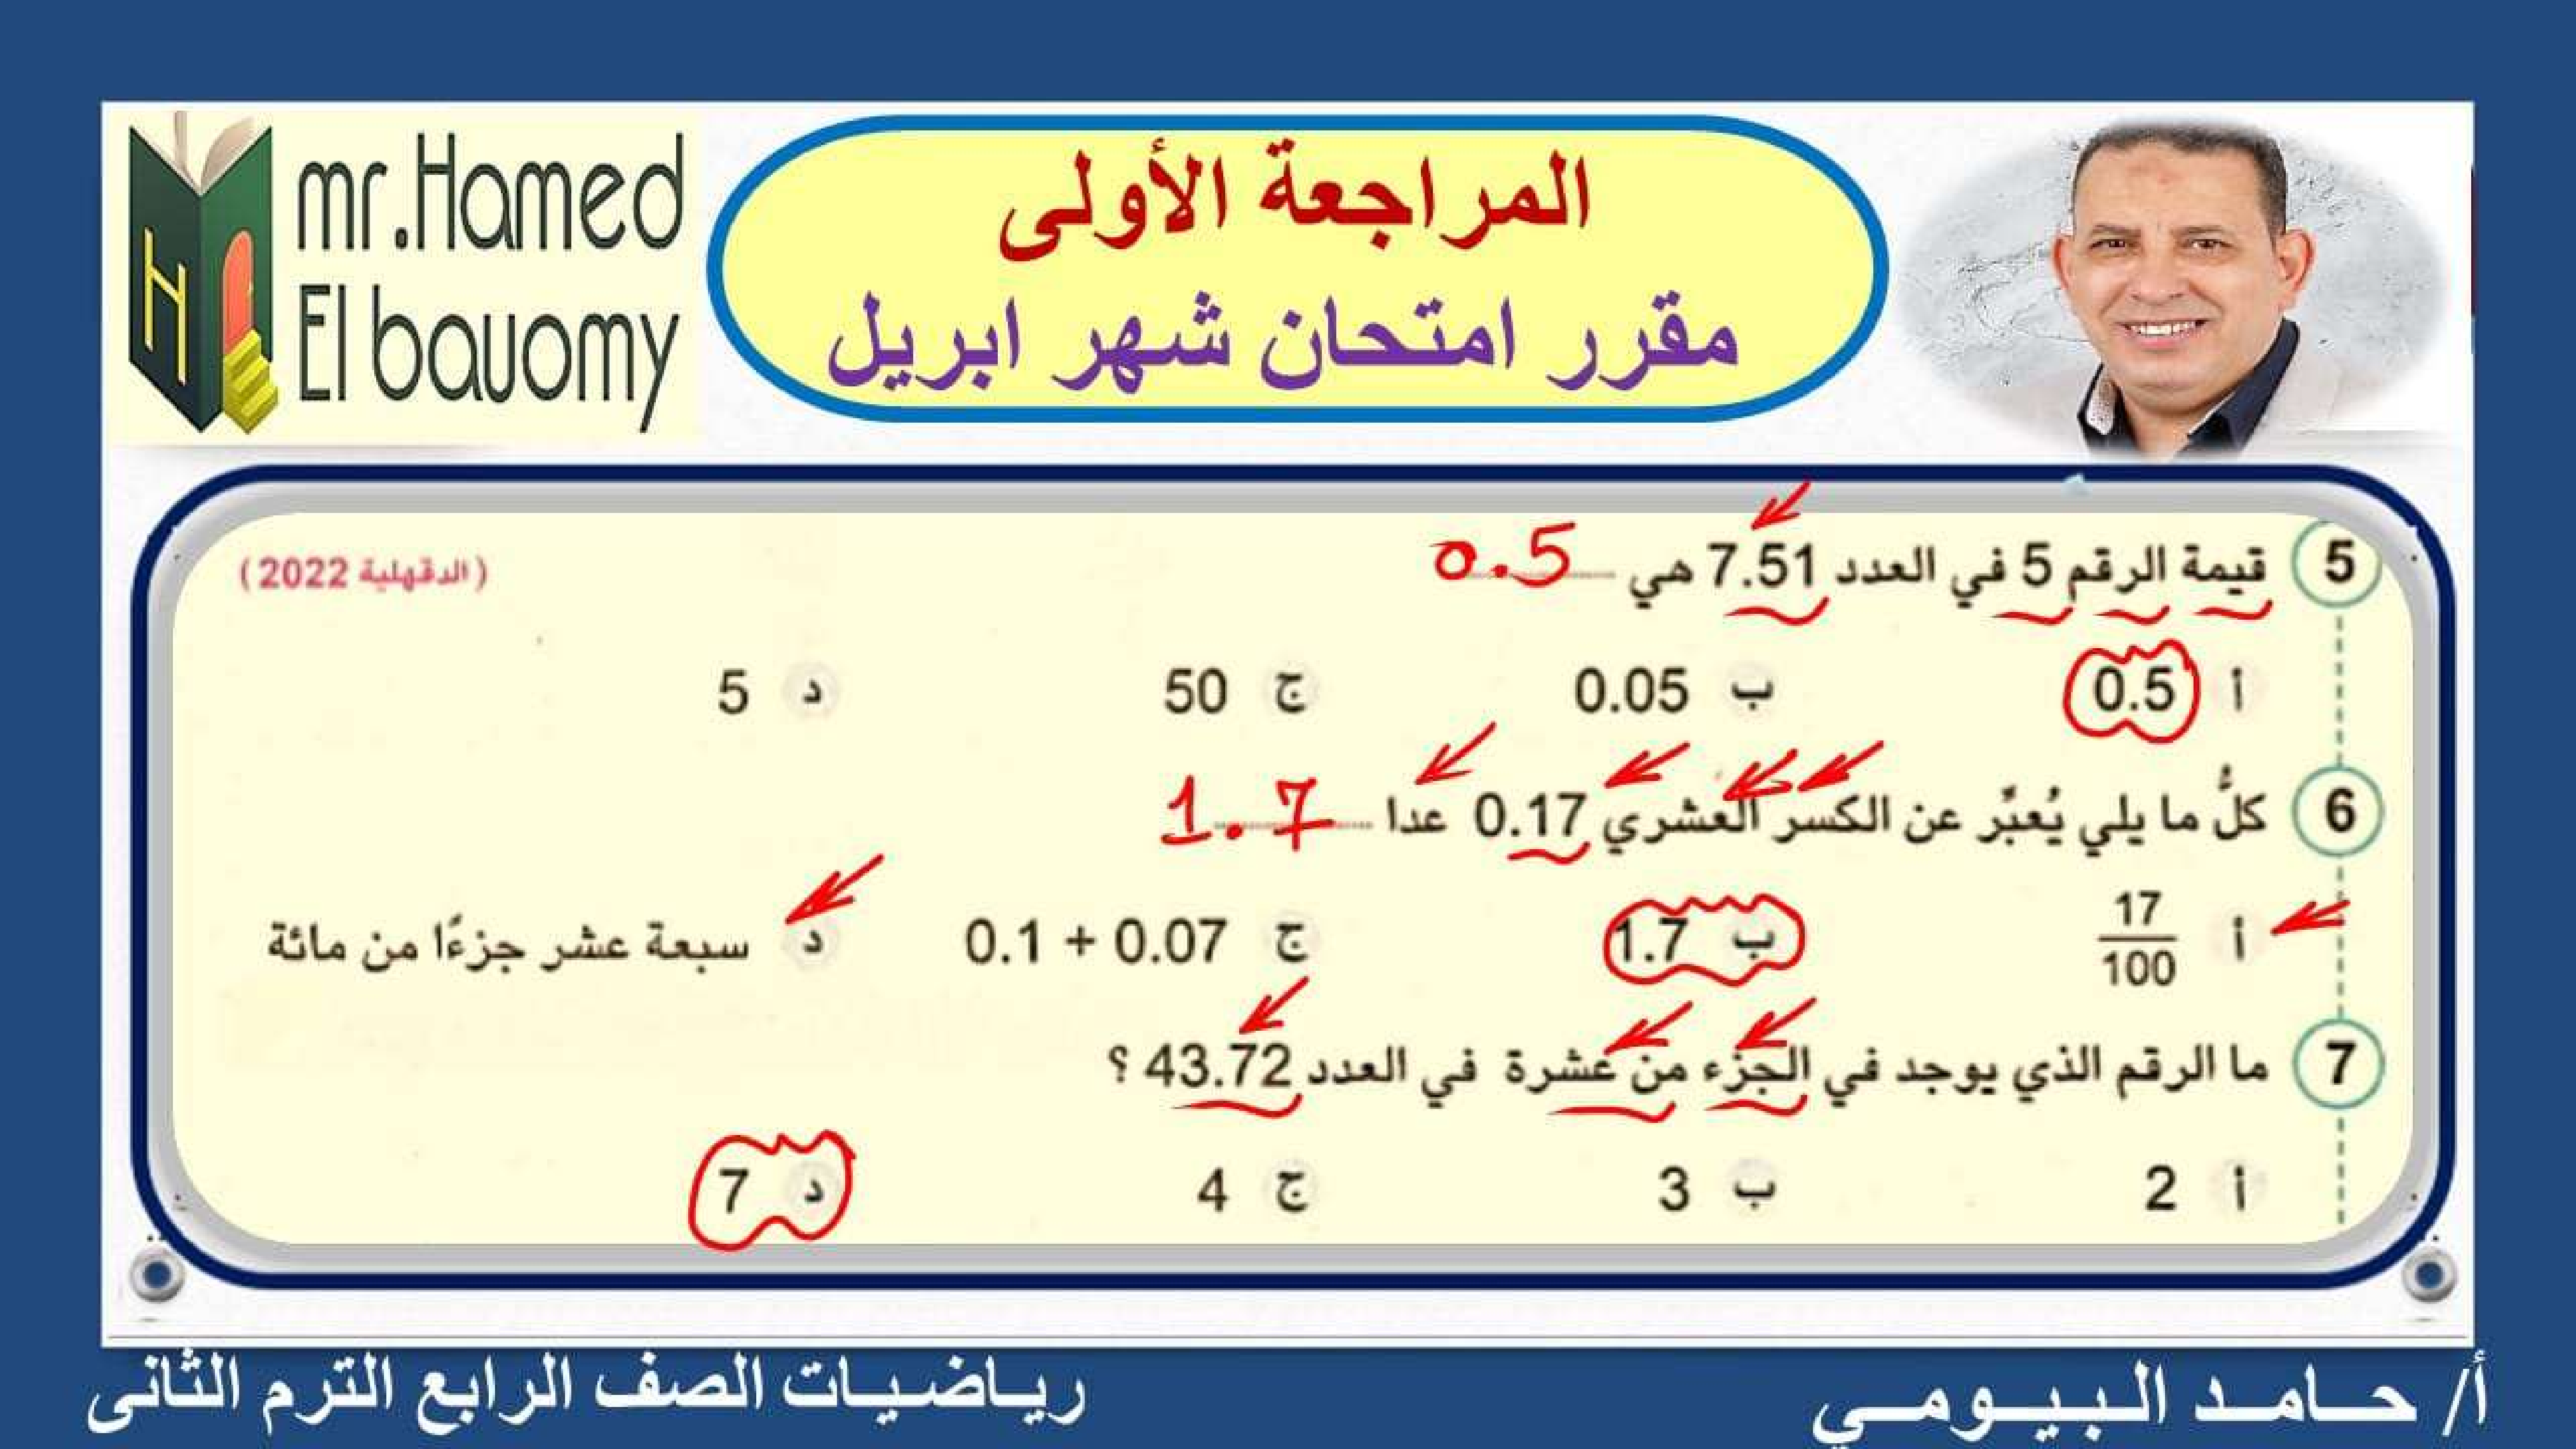 mr.Hamed
El bauomy
المراجعة الأولى
مقرر امتحان شهر ابريل
5 قيمة الرقم 5 في العدد 7.51 هي 0.5 (الدقهلية 2022)
أ 0.5 ب 0.05 ج 50 د 5
6 كلُّ ما يلي يُعبِّر عن الكسر العشري 0.17 عدا 1.7
أ 17/100 ب 1.7 ج 0.1 + 0.07 د سبعة عشر جزءًا من مائة
7 ما الرقم الذي يوجد في الجزء من عشرة في العدد 43.72 ؟
أ 2 ب 3 ج 4 د 7
أ/ حـامـد الـبـيـومـي
ريـاضـيـات الصف الرابع الترم الثانى